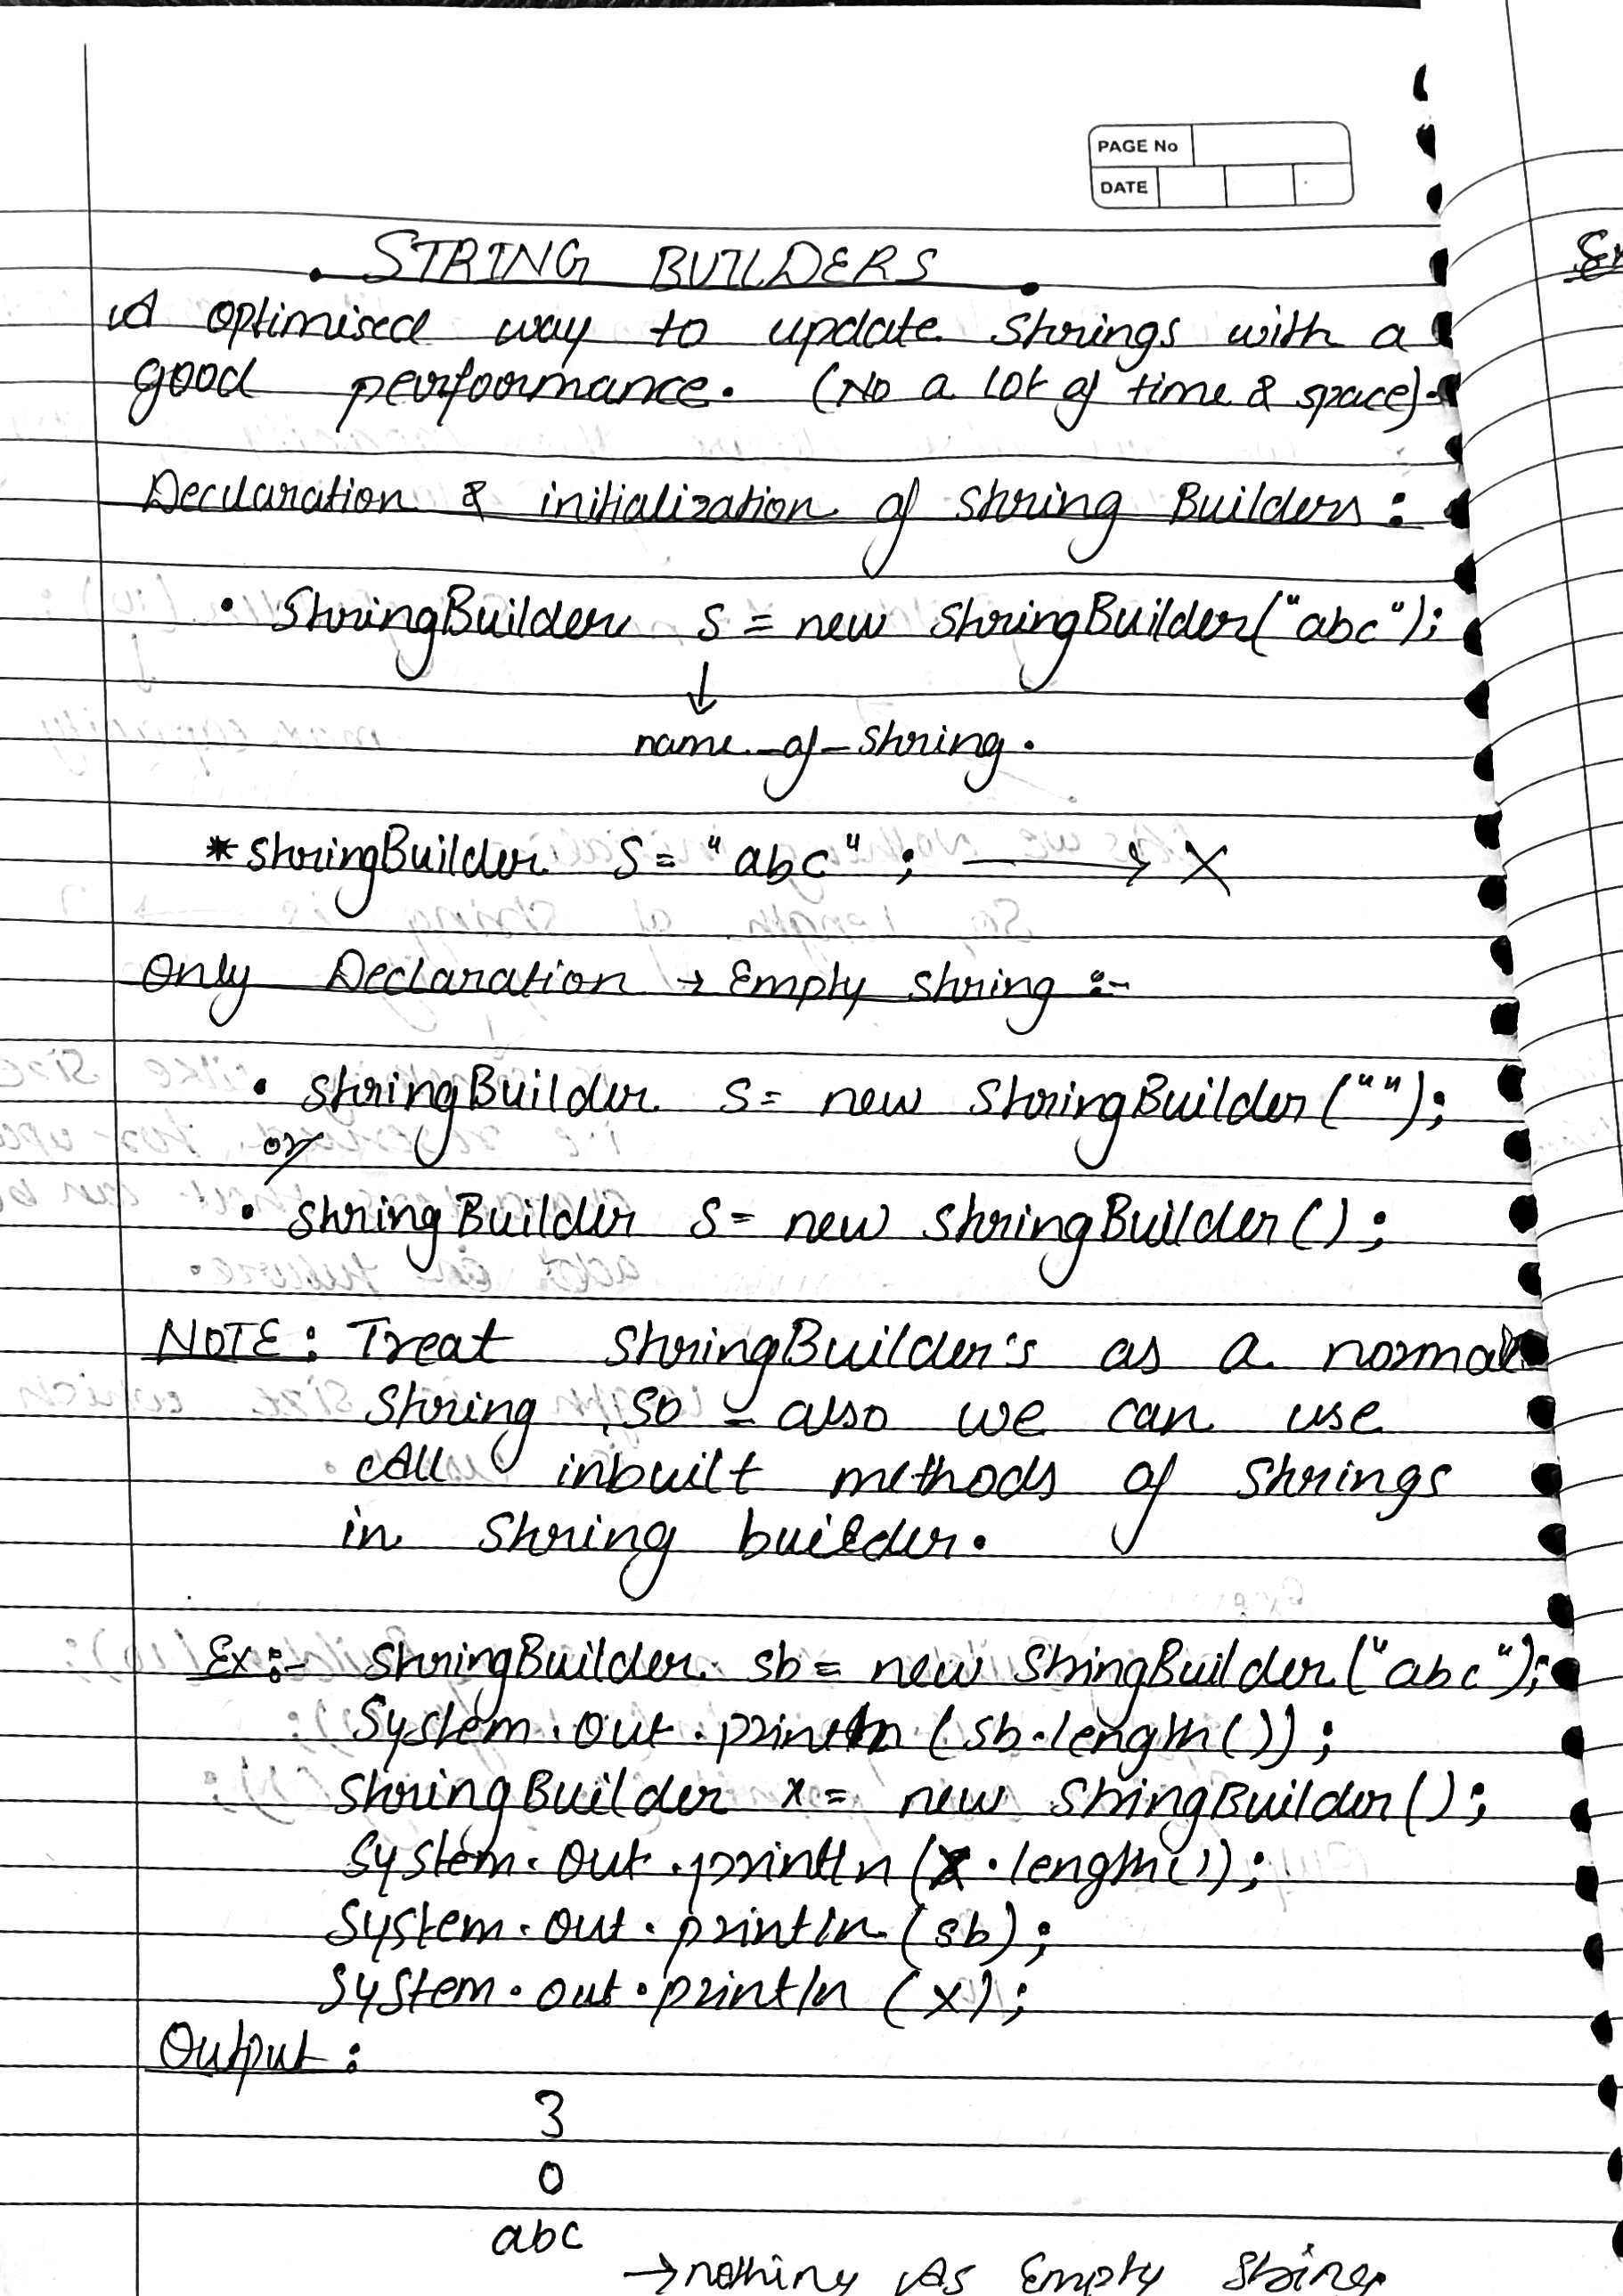 PAGE No
DATE
STRING BUILDERS
A optimised way to update strings with a
good performance. (No a lot of time & space).
Declaration & initialization of string Builders :
• StringBuilder s = new StringBuilder("abc");
↓
name_of_string.
* StringBuilder s = "abc" ; → X
Only Declaration → Empty string :-
• StringBuilder s = new StringBuilder ("");
or
• StringBuilder s = new StringBuilder ();
NOTE : Treat StringBuilder's as a normal
string so - also we can use
all inbuilt methods of strings
in string builder.
Ex :- StringBuilder sb = new StringBuilder ("abc");
System.out.println (sb.length());
StringBuilder x = new StringBuilder();
System.out.println (x.length());
System.out.println (sb);
System.out.println (x);
Output :
3
0
abc
→ nothing As Empty String